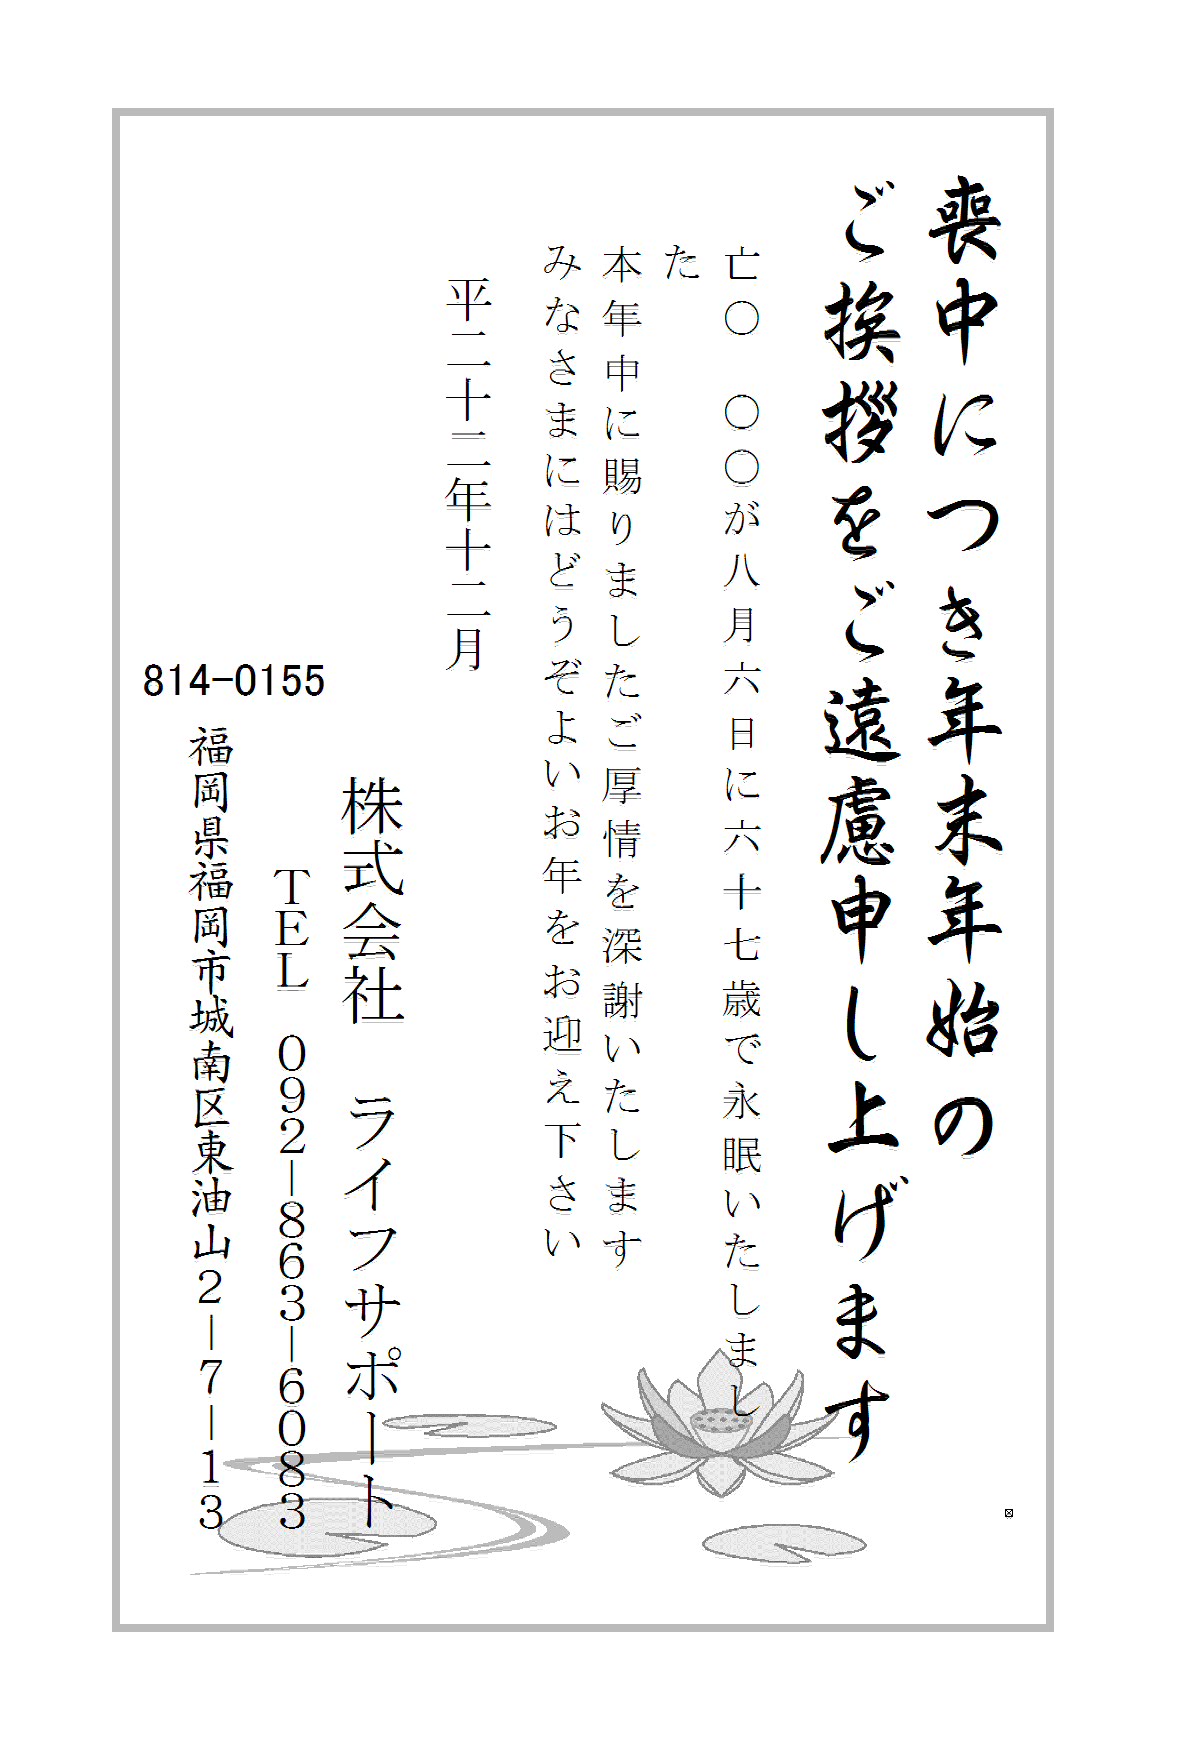 喪中につき年末年始の
ご挨拶をご遠慮申し上げます
亡〇　〇〇が八月六日に六十七歳で永眠いたしまし
た
本年中に賜りましたご厚情を深謝いたします
みなさまにはどうぞよいお年をお迎え下さい
平二十二年十二月
株式会社　ライフサポート
ＴＥＬ　０９２－８６３－６０８３
814-0155
福岡県福岡市城南区東油山２－７－１３